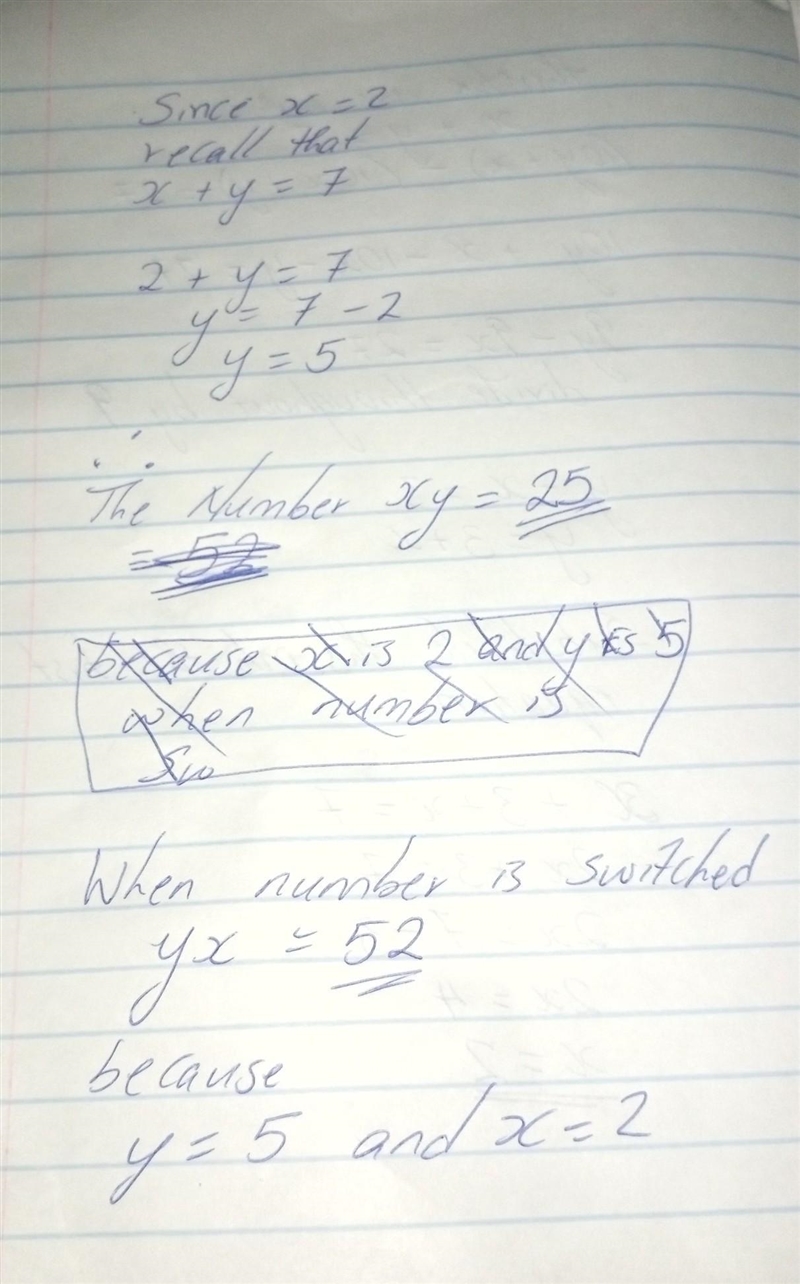 Since x = 2
recall that
x + y = 7
2 + y = 7
y = 7 - 2
y = 5
∴
The Number xy = 25
= 52
because x is 2 and y is 5
when number is
Sw
When number is switched
yx = 52
because
y = 5 and x = 2